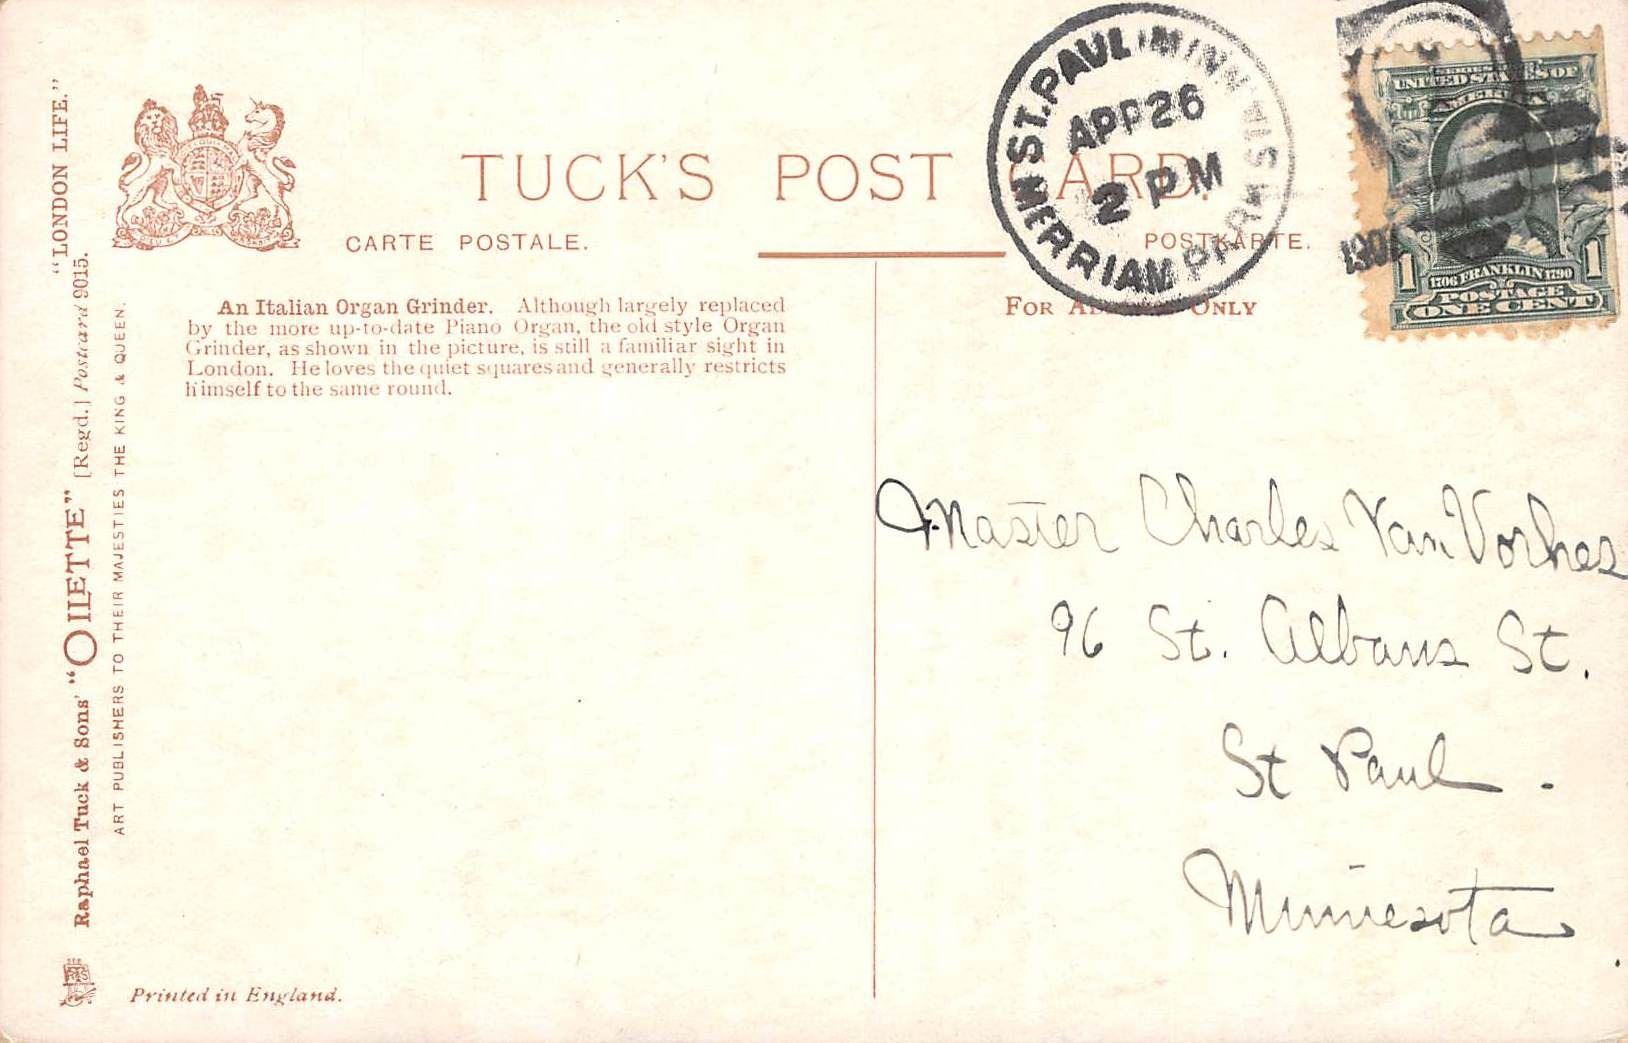 "LONDON LIFE."
Raphael Tuck & Sons' "OILETTE" [Regd.] Postcard 9015.
ART PUBLISHERS TO THEIR MAJESTIES THE KING & QUEEN.
TUCK'S POST CARD.
CARTE POSTALE.
POSTKARTE.
An Italian Organ Grinder. Although largely replaced
by the more up-to-date Piano Organ, the old style Organ
Grinder, as shown in the picture, is still a familiar sight in
London. He loves the quiet squares and generally restricts
himself to the same round.
FOR ADDRESS ONLY
ST. PAUL, MINN.
MERRIAM PARK STA.
APR 26
2 PM
SERIES
UNITED STATES OF
AMERICA
1706 FRANKLIN 1790
1 1
POSTAGE
ONE CENT
Master Charles Van Vorhes
96 St. Albans St.
St Paul.
Minnesota
Printed in England.